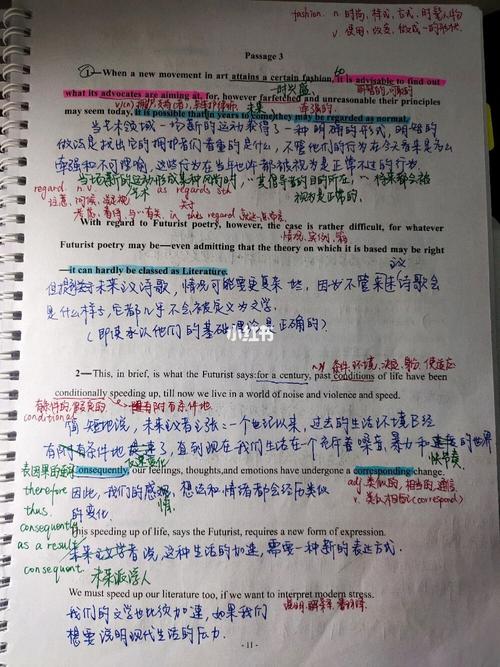 fashion. n. 时尚, 样式, 方式, 时髦人物
v. 使用, 改变, 做成一的形状
Passage 3
①—When a new movement in art attains a certain fashion, it is advisable to find out
what its advocates are aiming at, for, however farfetched and unreasonable their principles
v/n) 拥护者 未来 牵强的
may seem today, it is possible that in years to come they may be regarded as normal.
当艺术领域一场新的运动获得了一种明确的形式, 明智的
做法是找出它的拥护者们看重的是什么, 不管他们的行为在今天看来多么
牵强和不可理喻, 这些行为在当年也许都被视为是正常不过的行为
regard. n. v.
as regards sth
视为是正常的.
注意, 问候, 凝视
关于
考虑, 看待, 与一有关. in this regard
With regard to Futurist poetry, however, the case is rather difficult, for whatever
情况, 案例, 箱
Futurist poetry may be—even admitting that the theory on which it is based may be right
—it can hardly be classed as Literature.
但根据未来主义诗歌, 情况可能要更复杂些, 因为不管未来主义诗歌会
是什么样子, 它都几乎不会被定义为文学.
(即使承认他们的基础理论是正确的?)
小红书
n/v 条件, 环境, 决定, 使适应
2—This, in brief, is what the Futurist says: for a century, past conditions of life have been
conditionally speeding up, till now we live in a world of noise and violence and speed.
有条件的
附有条件地
conditional
简短地说, 未来主义者说: 一个世纪以来, 过去的生活环境已经
有附有条件地 变化, 直到现在我们生活在一个充斥着噪音, 暴力和速度的世界
快节奏
表因果的
Consequently, our feelings, thoughts, and emotions have undergone a corresponding change.
therefore
因此, 我们的感观, 想法和情绪都会经历类似
adj 类似的, 相当的, 通信
thus.
的变化.
情
v. 类似相当 (correspond)
consequently
This speeding up of life, says the Futurist, requires a new form of expression.
as a result
未来主义学者说, 这种生活的加速, 需要一种新的表达方式.
consequent.
未来派学人
We must speed up our literature too, if we want to interpret modern stress.
我们的文学也必须加速, 如果我们
说明, 解释, 翻译
想要说明现代生活的压力.
- 11 -